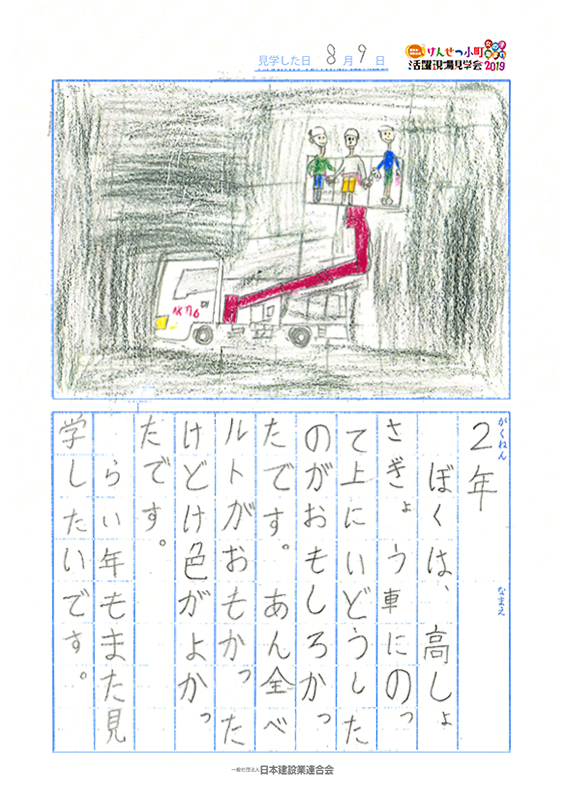 見学した日 8月9日
けんせつ小町
活躍現場見学会2019
AKTIO
がくねん
2年
なまえ
ぼくは、高しょ
さぎょう車にのっ
て上にいどうした
のがおもしろかっ
たです。あん全べ
ルトがおもかった
けどけ色がよかっ
たです。
らい年もまた見
学したいです。
一般社団法人日本建設業連合会